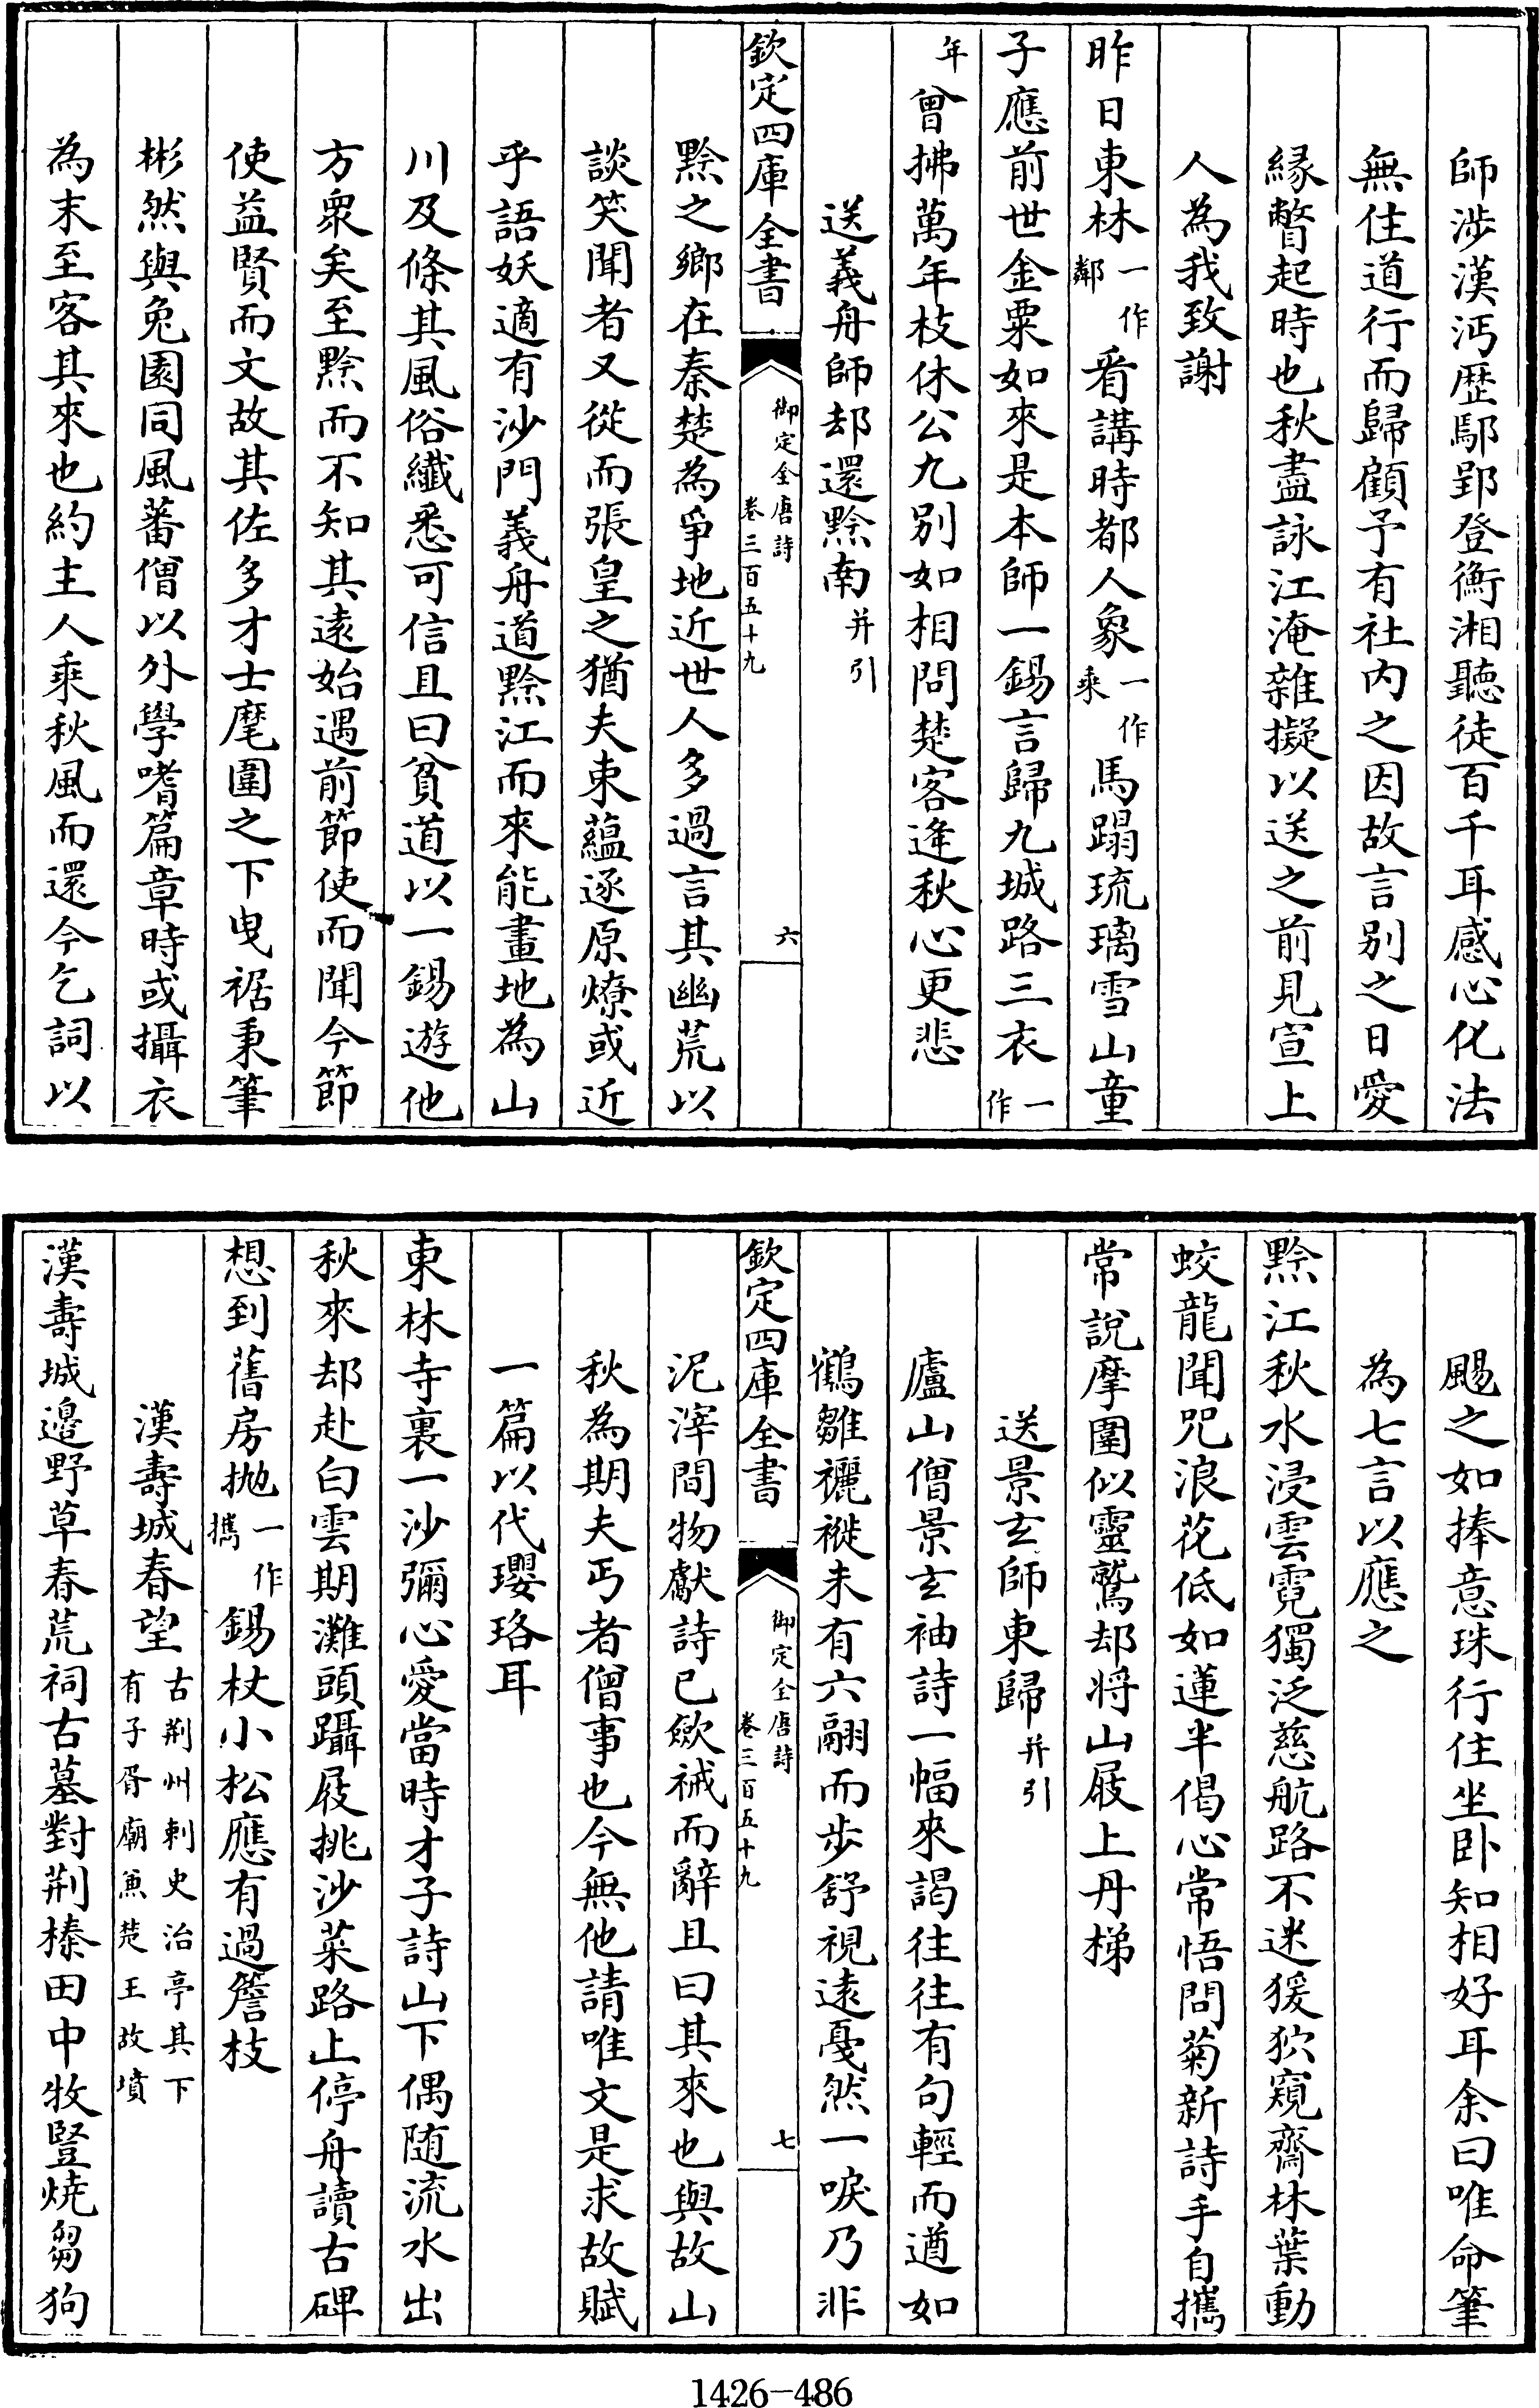 師涉漢沔歴鄢郢登衡湘聽徒百千耳感心化法
無住道行而歸顧予有社内之因故言别之日愛
緣瞥起時也秋盡詠江淹雜擬以送之前見宣上
人為我致謝
昨日東林一作鄰看講時都人象一作乘馬蹋琉璃雪山童
子應前世金粟如來是本師一錫言歸九城路三衣一作
年曾拂萬年枝休公九别如相問楚客逢秋心更悲
送義舟師却還黔南并引
欽定四庫全書
御定全唐詩
卷三百五十九
六
黔之鄉在秦楚為爭地近世人多過言其幽荒以
談笑聞者又從而張皇之猶夫束蘊逐原燎或近
乎語妖適有沙門義舟道黔江而來能畫地為山
川及條其風俗纖悉可信且曰貧道以一錫遊他
方衆矣至黔而不知其遠始遇前節使而聞今節
使益賢而文故其佐多才士麾圍之下曳裾秉筆
彬然與兔園同風蕃僧以外學嗜篇章時或攝衣
為末至客其來也約主人乘秋風而還今乞詞以
颺之如捧意珠行住坐卧知相好耳余曰唯命筆
為七言以應之
黔江秋水浸雲霓獨泛慈航路不迷猨狖窺齋林葉動
蛟龍聞咒浪花低如蓮半偈心常悟問菊新詩手自攜
常說摩圍似靈鷲却將山屐上丹梯
送景玄師東歸并引
廬山僧景玄袖詩一幅來謁往往有句輕而遒如
鶴雛襹褷未有六翮而步舒視遠戞然一唳乃非
欽定四庫全書
御定全唐詩
卷三百五十九
七
泥滓間物獻詩已斂裓而辭且曰其來也與故山
秋為期夫丐者僧事也今無他請唯文是求故賦
一篇以代瓔珞耳
東林寺裏一沙彌心愛當時才子詩山下偶隨流水出
秋來却赴白雲期灘頭躡屐挑沙菜路上停舟讀古碑
想到舊房抛一作攜錫杖小松應有過簷枝
漢壽城春望古荆州刺史治亭其下有子胥廟兼楚王故墳
漢壽城邊野草春荒祠古墓對荆榛田中牧豎燒芻狗
1426-486